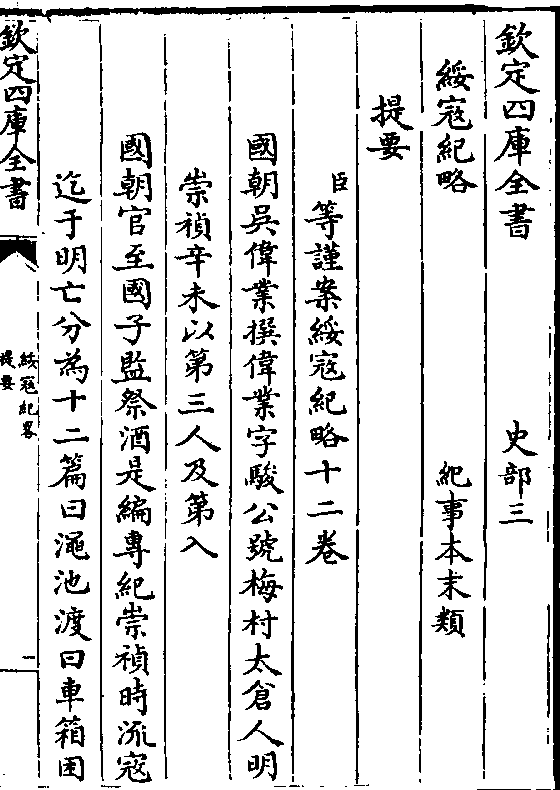 欽定四庫全書　史部三
綏寇紀略　紀事本末類
提要
臣等謹案綏寇紀略十二卷
國朝吳偉業撰偉業字駿公號梅村太倉人明
崇禎辛未以第三人及第入
國朝官至國子監祭酒是編專紀崇禎時流寇
迄于明亡分為十二篇曰澠池渡曰車箱困
欽定四庫全書
綏寇紀畧
提要
一